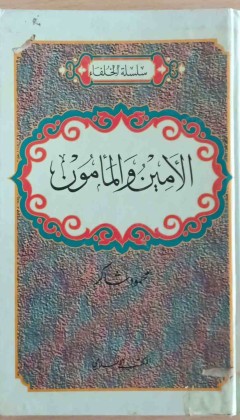 سلسلة الخلفاء
الأمين والمأمون
محمود شاكر
المكتب الإسلامي